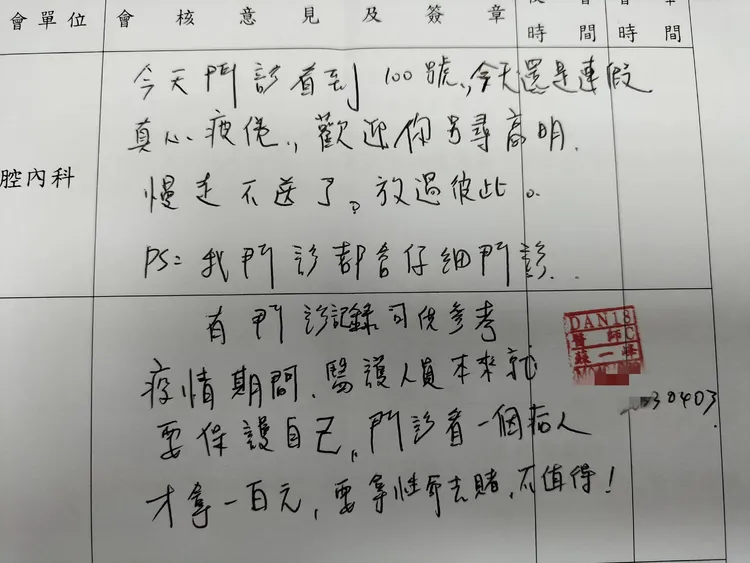 會單位 會核意見及簽章 時間 會 時間
腔內科
今天門診看到100號,,今天還是連假
真心疲倦,,歡迎你另尋高明.
慢走不送了。放過彼此。
PS= 我門診都會仔細門診..
有門診記錄可供參考
DAN18
醫師
蘇一
疫情期間.醫護人員本來就
0403.
要保護自己,,門診看一個病人
才拿一百元,要拿性命去賭,不值得!